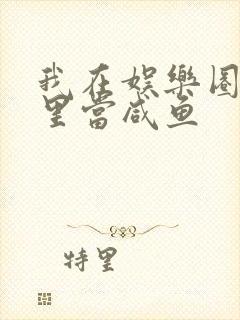 我在娱樂圈
里當咸鱼
特里